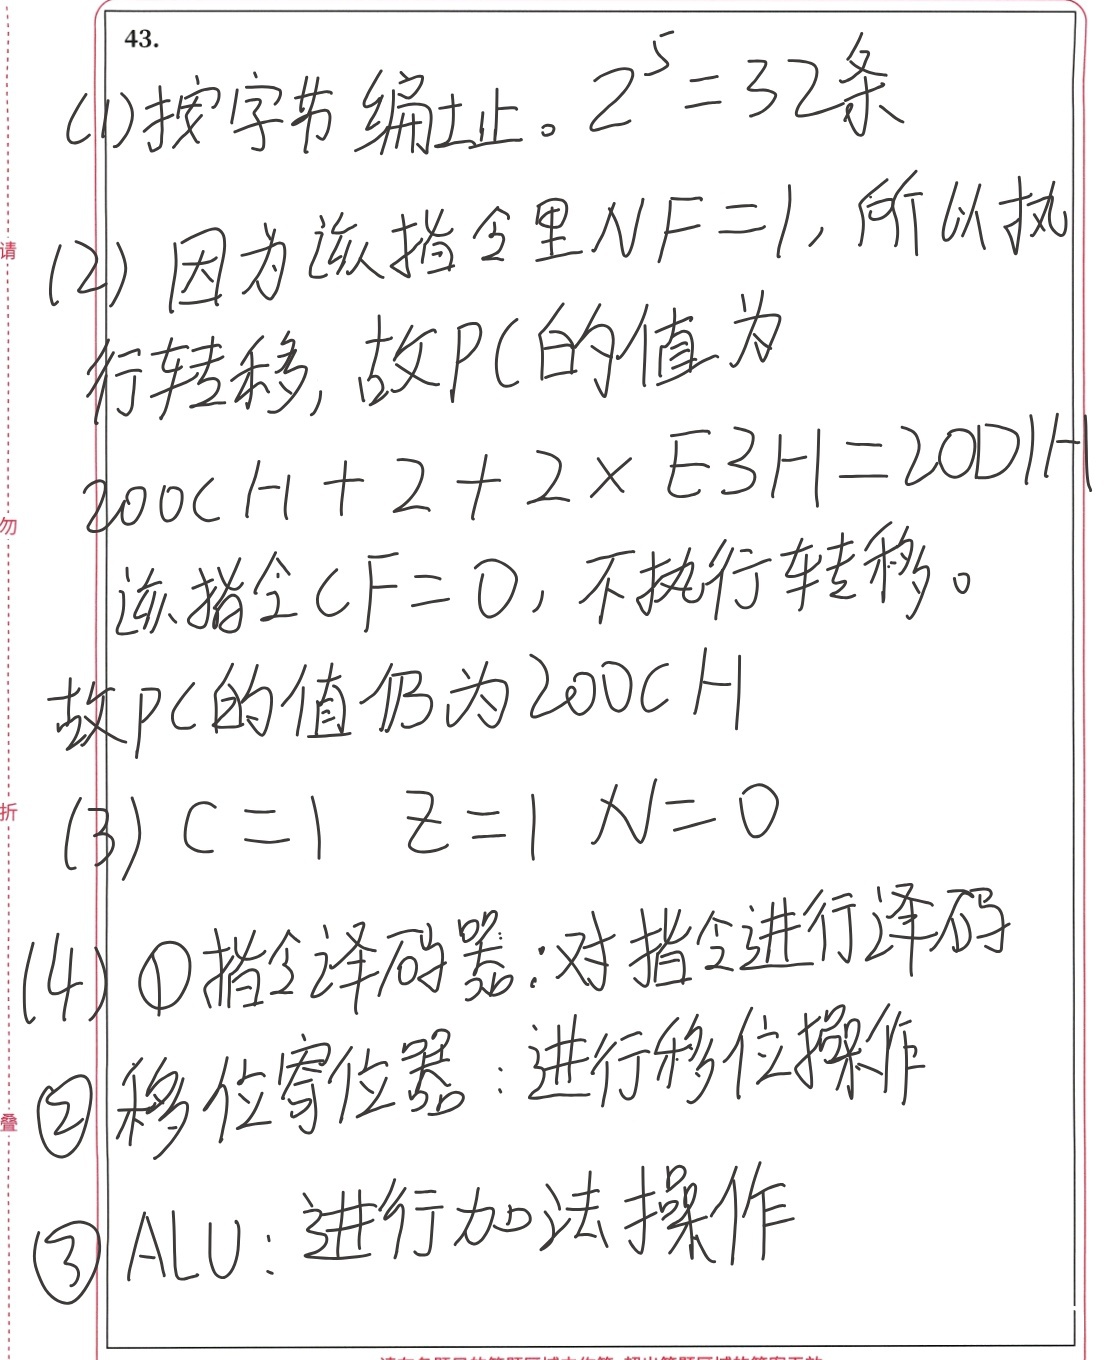 43.
(1)按字节编址。2^5=32条
(2) 因为该指令里NF=1, 所以执
请
行转移, 故PC的值为
200CH+2+2×E3H=20D1H
勿
该指令CF=0, 不执行转移。
故PC的值仍为200CH
(3) C=1 Z=1 N=0
折
(4) ①指令译码器:对指令进行译码
②移位寄位器:进行移位操作
叠
③ALU:进行加法操作